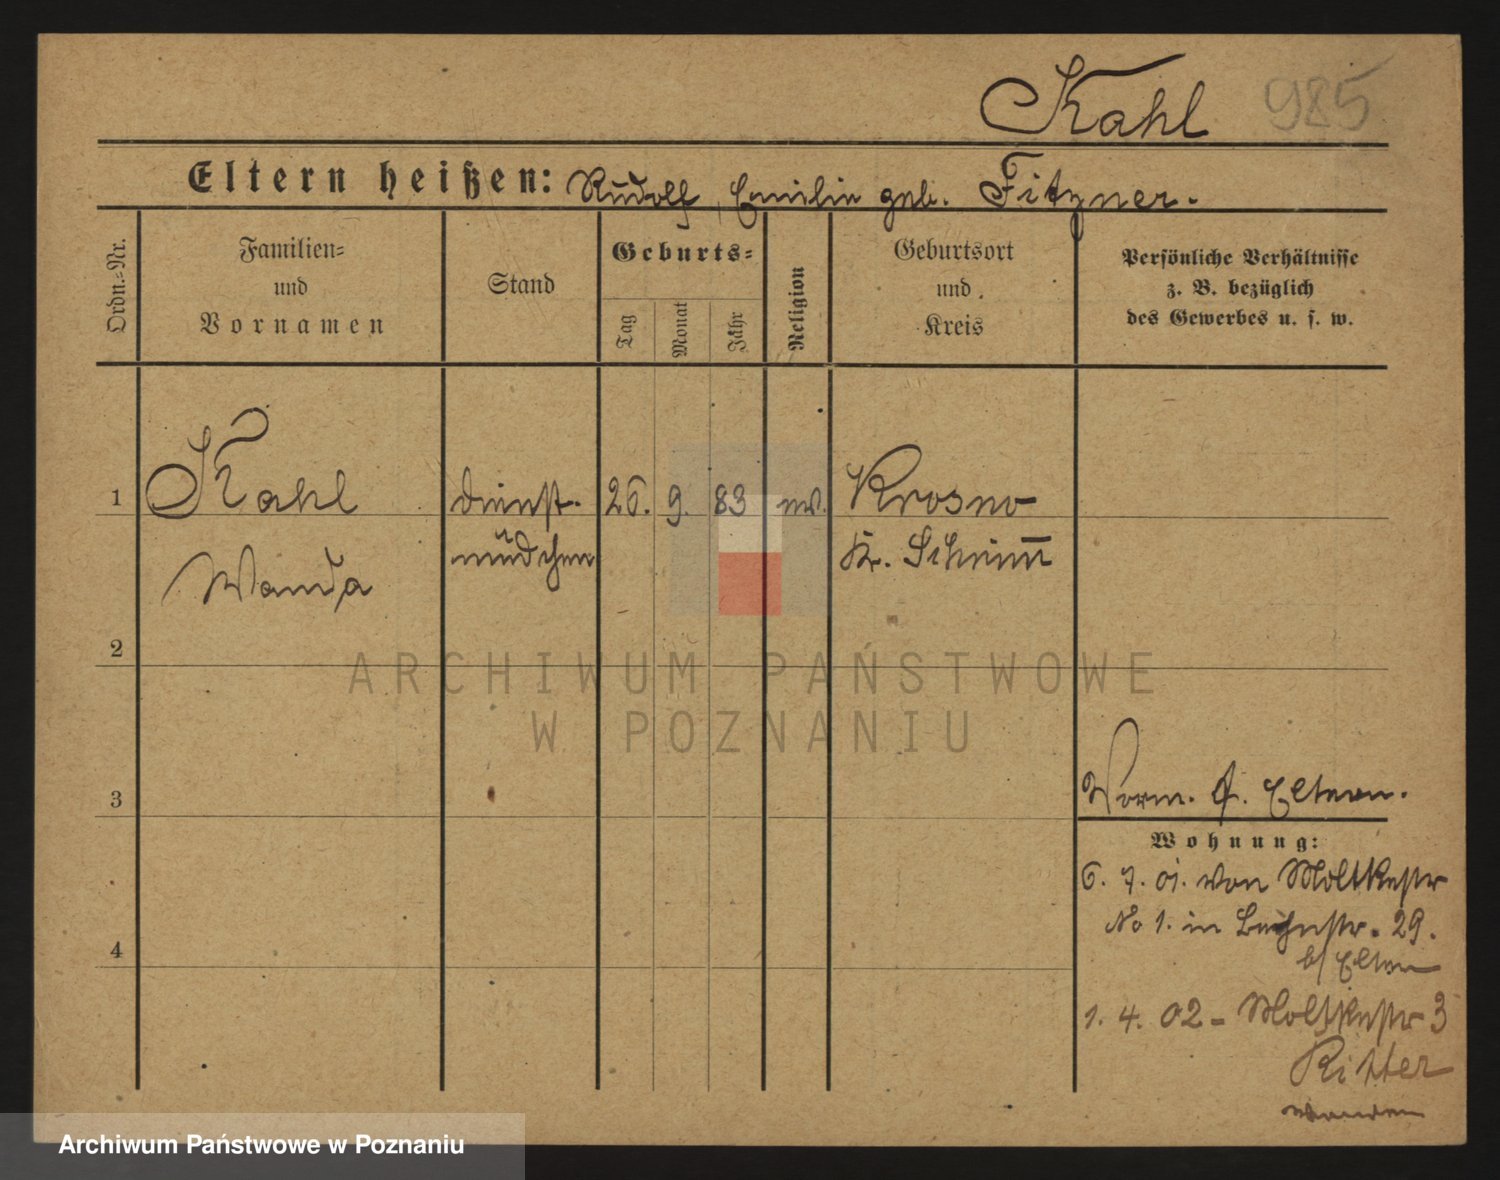 Kahl 985
Eltern heißen: Rudolf, Emilie geb. Fitzner.
Ordn.=Nr.
Familien=
und
Vornamen
Stand
Geburts=
Tag
Monat
Jahr
Religion
Geburtsort
und
Kreis
Persönliche Verhältnisse
z. B. bezüglich
des Gewerbes u. s. w.
1
Kahl
Wanda
Dienst-
mädchen
26. 9. 83
ev.
Krosno
Kr. Schrimm
2
3
4
Vorm. Eltern.
Wohnung:
6. 7. 01. von Moltkestr
No 1. in Bahnstr. 29.
b/ Eltern
1. 4. 02 - Moltkestr 3
Ritter
ARCHIWUM PAŃSTWOWE
W POZNANIU
Archiwum Państwowe w Poznaniu